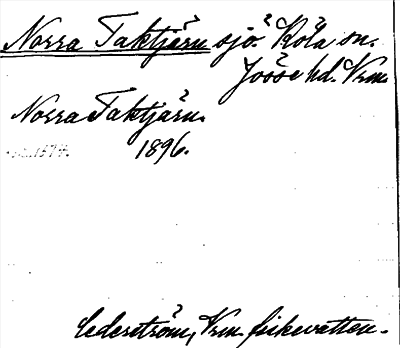 Norra Taktjärn sjö. Köla sn.
Jösse hd. Vrm.
Norra Taktjärn.
1896.
Cederström, Vrm. fiskevatten.